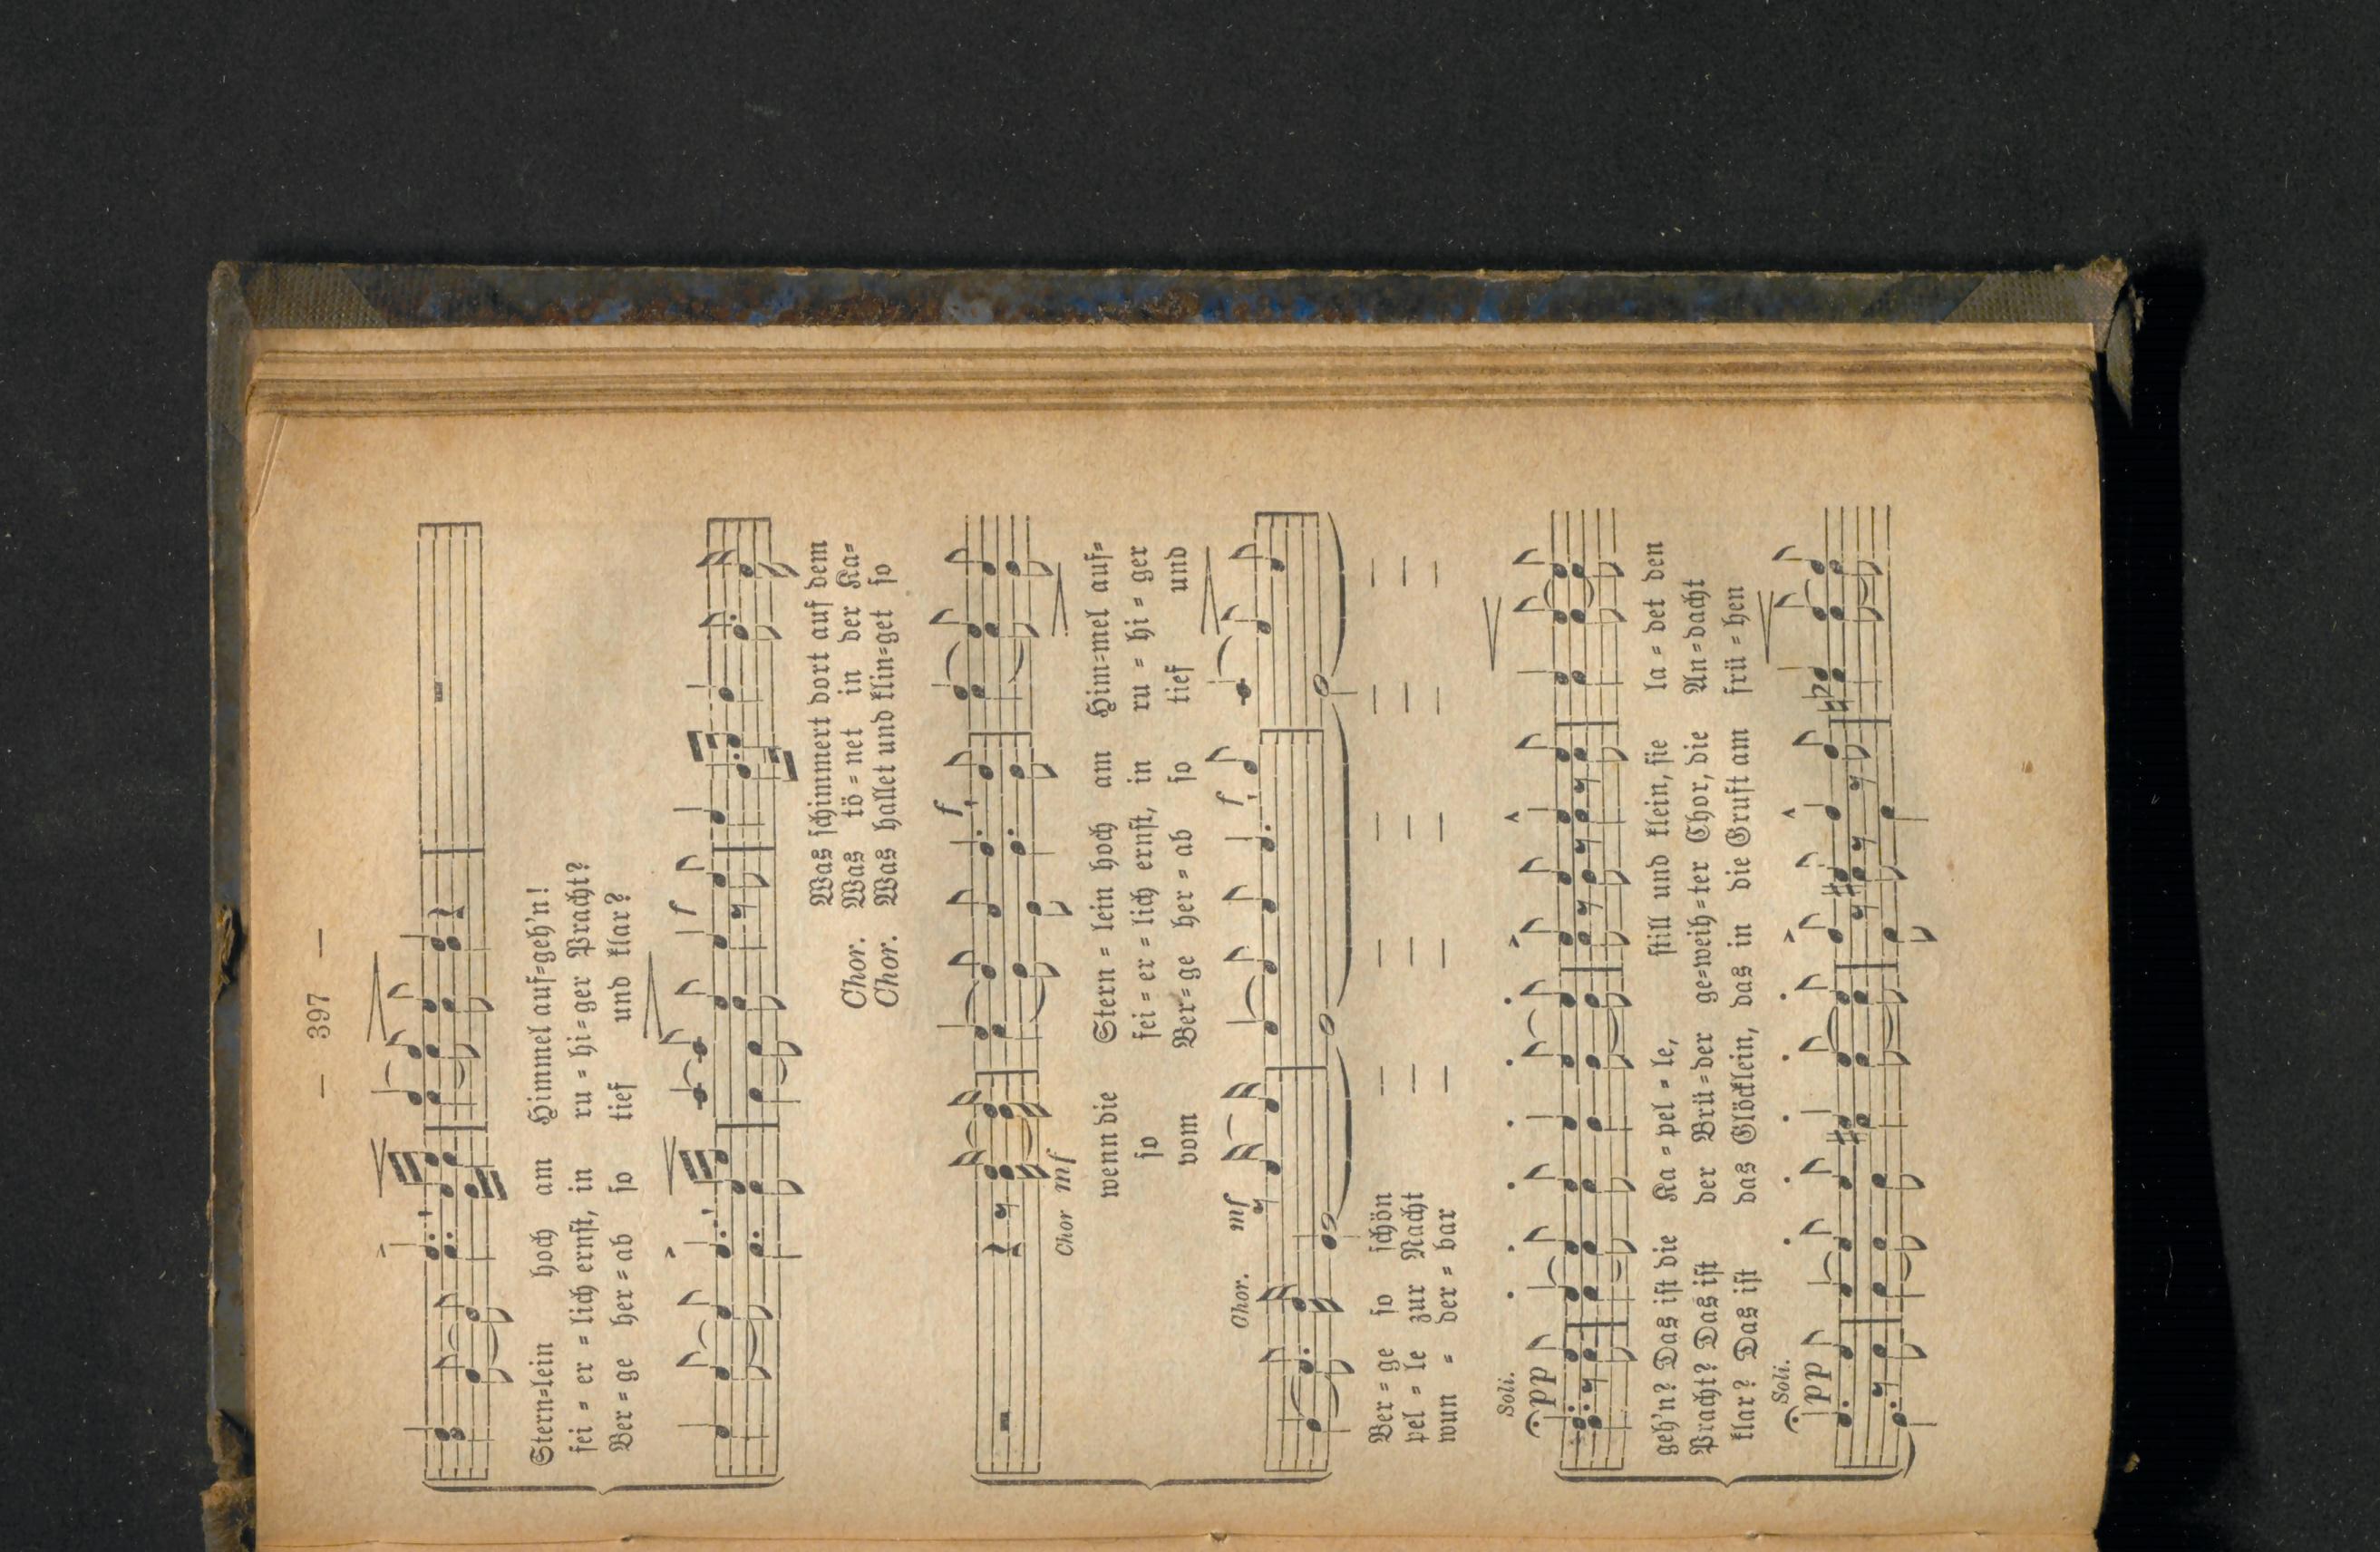 — 397 —
Stern=lein hoch am Himmel auf=geh'n!
fei = er = lich ernst, in ru = hi = ger Pracht?
Ber = ge her = ab so tief und klar?
f
Was schimmert dort auf dem
Chor. Was tö = net in der Ka=
Chor. Was hallet und klin=get so
f
Chor mf
wenn die Stern = lein hoch am Him=mel auf=
so fei = er = lich ernst, in ru = hi = ger
vom Ber = ge her = ab so tief und
Chor. mf f
Ber = ge so schön — — — — — —
pel = le zur Nacht — — — — — —
wun = der = bar — — — — — —
Soli.
pp
geh'n? Das ist die Ka = pel = le, still und klein, sie la = det den
Pracht? Das ist der Brü = der ge=weih=ter Chor, die An=dacht
klar? Das ist das Glöcklein, das in die Gruft am frü = hen
Soli.
pp